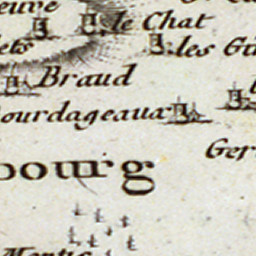 euve
le Chat
lets
les Gu
Braud
ourdageaux
Ger
bourg